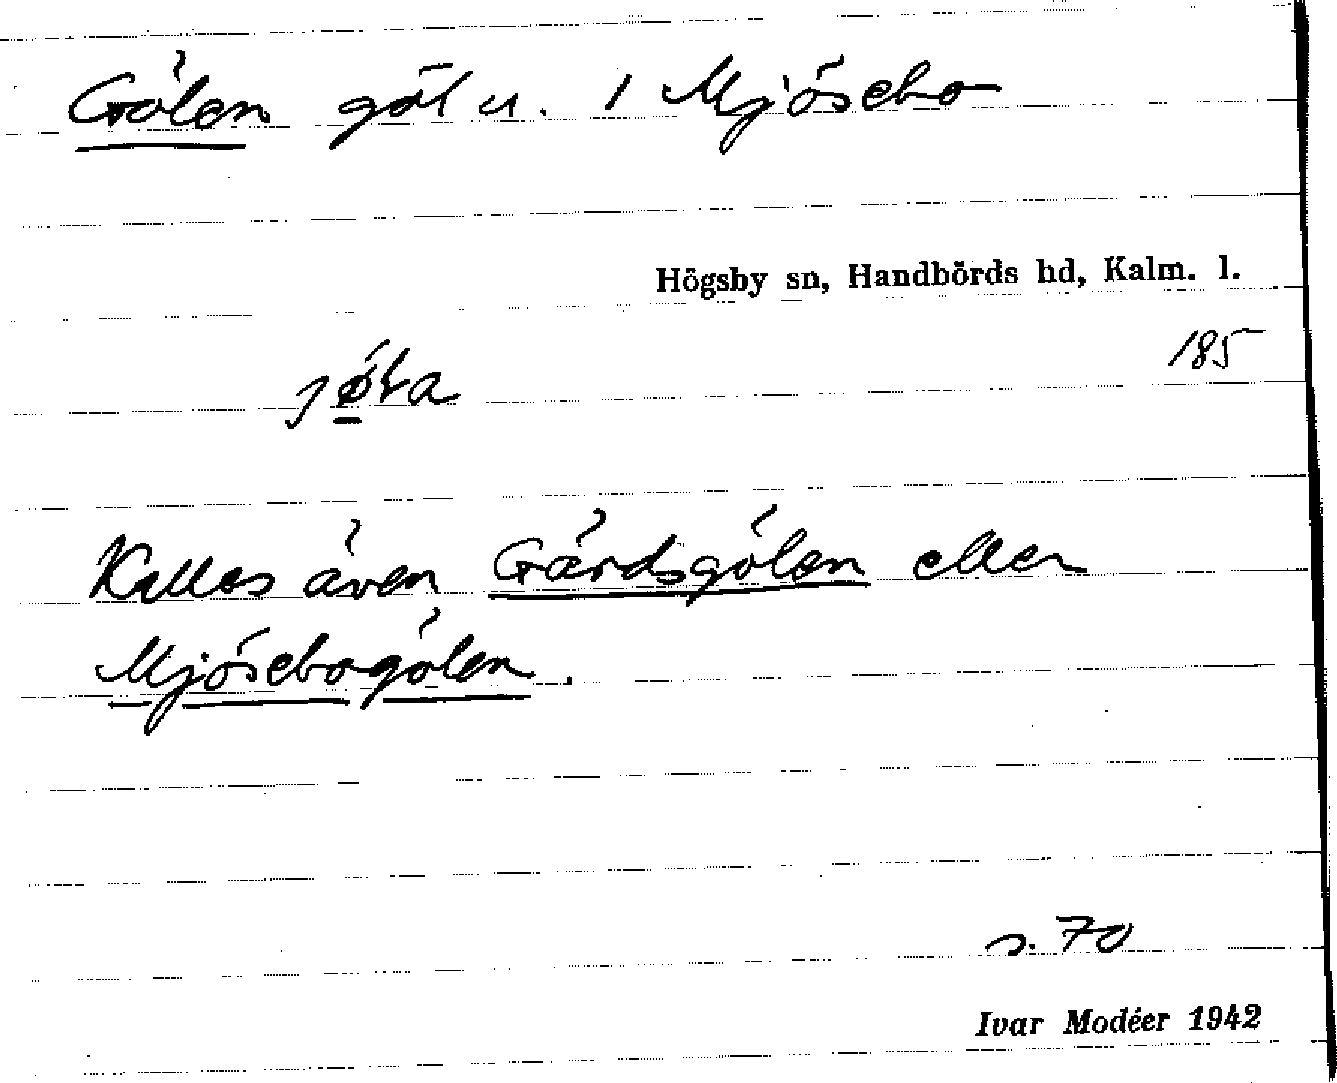 Gölen göl u. 1 Mjösebo
Högsby sn, Handbörds hd, Kalm. l.
185
Kallas även Gärdsgölen eller
Mjösebogölen.
s. 70
Ivar Modéer 1942